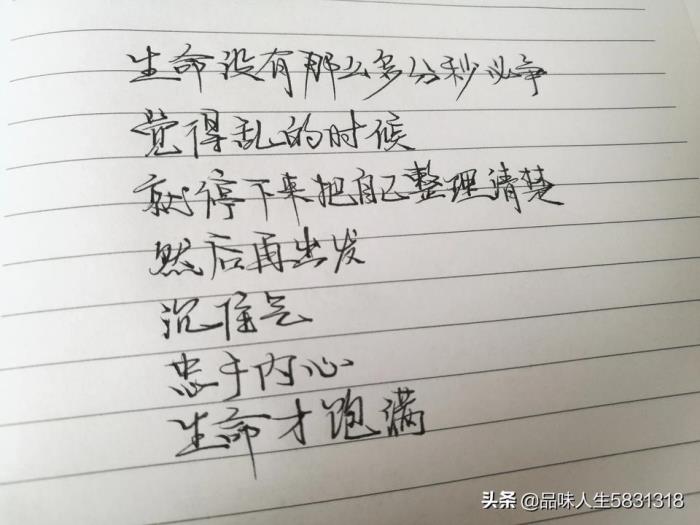 生命没有那么多分秒必争
觉得乱的时候
就停下来把自己整理清楚
然后再出发
沉住气
忠于内心
生命才跑满
头条 @品味人生5831318